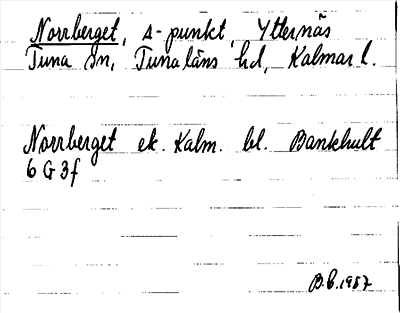 Norrberget, s-punkt, Ytternäs
Tuna sn, Tunaläns hd, Kalmar l.
Norrberget ek. Kalm. bl. Bankhult
6 G 3f
B.b.1957